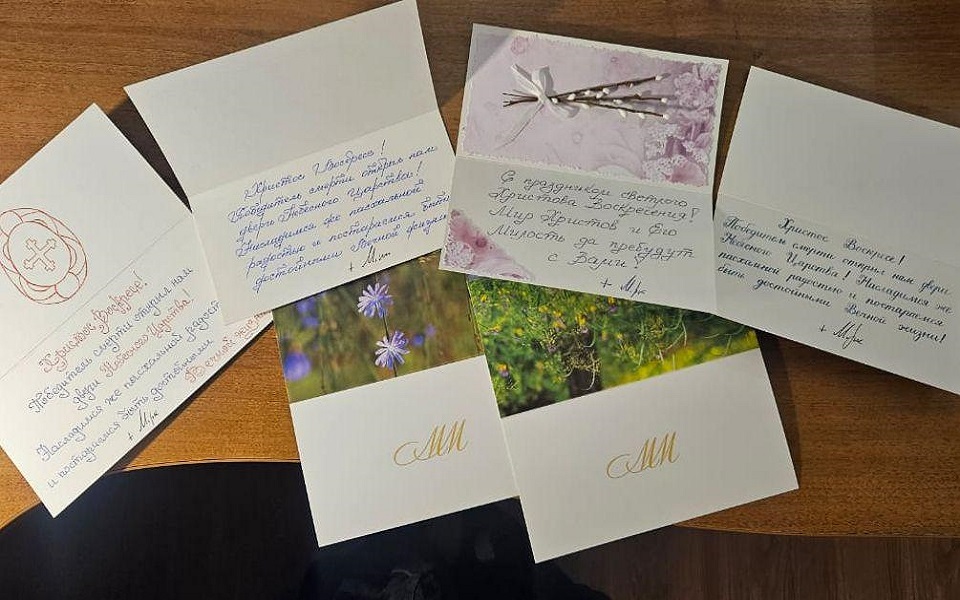 Христос Воскресе!
Победитель смерти открыл нам
двери Небесного Царства!
Насладимся же пасхальной радостью
и постараемся быть достойными
Вечной жизни!
+ М
Христос Воскресе!
Победитель смерти открыл нам
двери Небесного Царства!
Насладимся же пасхальной
радостью и постараемся быть
достойными Вечной жизни
+ М
С праздником светлого
Христова Воскресения!
Мир Христов и Его
Милость да пребудут
с Вами!
+ М
Христос Воскресе!
Победитель смерти открыл нам двери
Небесного Царства! Насладимся же
пасхальной радостью и постараемся
быть достойными Вечной жизни!
+ М
ММ
ММ